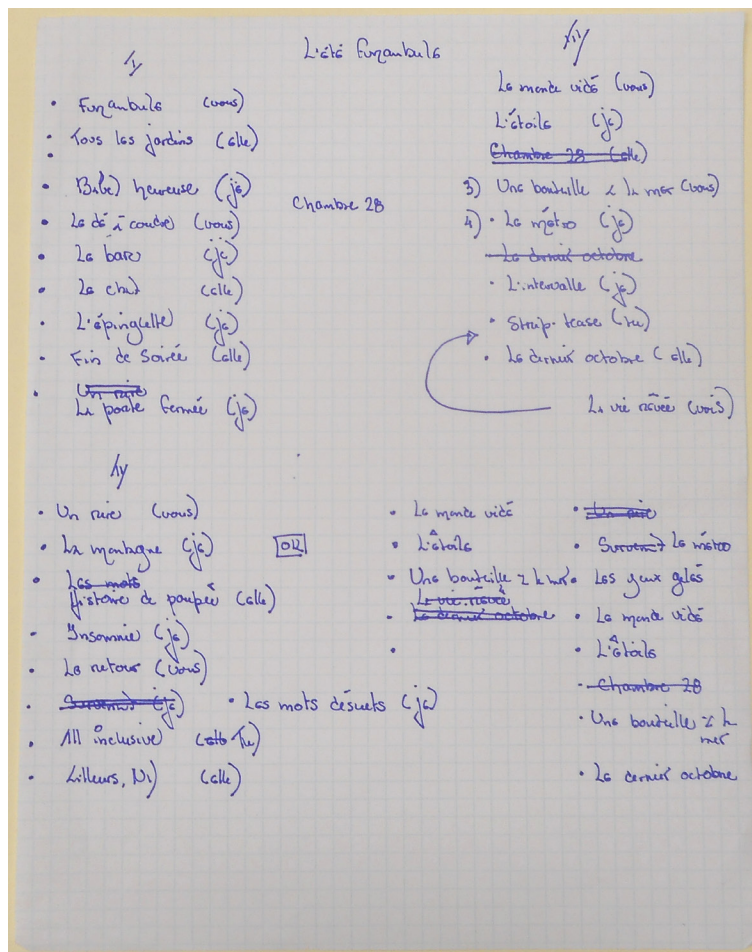 L'été funambule
I
• Funambule (vous)
• Tous les jardins (elle)
• Bébé heureuse (je)
• Le dé à coudre (vous)
• Le banc (je)
• Le chat (elle)
• L'épinglette (je)
• Fin de soirée (elle)
• Un rire
La porte fermée (je)
Chambre 28
III
Le monde vidé (vous)
L'étoile (je)
Chambre 28 (elle)
3) Une bouteille à la mer (vous)
4) • Le métro (je)
Le dernier octobre
• L'intervalle (je)
• Strip-tease (tu)
• Le dernier octobre (elle)
La vie rêvée (vous)
• Un rire (vous)
• La montagne (je)
OK
• Les mots
Histoire de poupée (elle)
• Insomnie (je)
• Le retour (vous)
• Survenir (je) • Les mots désuets (je)
• All inclusive (elle Tu)
• Ailleurs, Ni) (elle)
• Le monde vidé
• L'étoile
• Une bouteille à la mer
La vie rêvée
• Le dernier octobre
•
• Un rire
• Survenir Le métro
• Les yeux gelés
• Le monde vidé
• L'étoile
• Chambre 28
• Une bouteille à la
mer
• Le dernier octobre